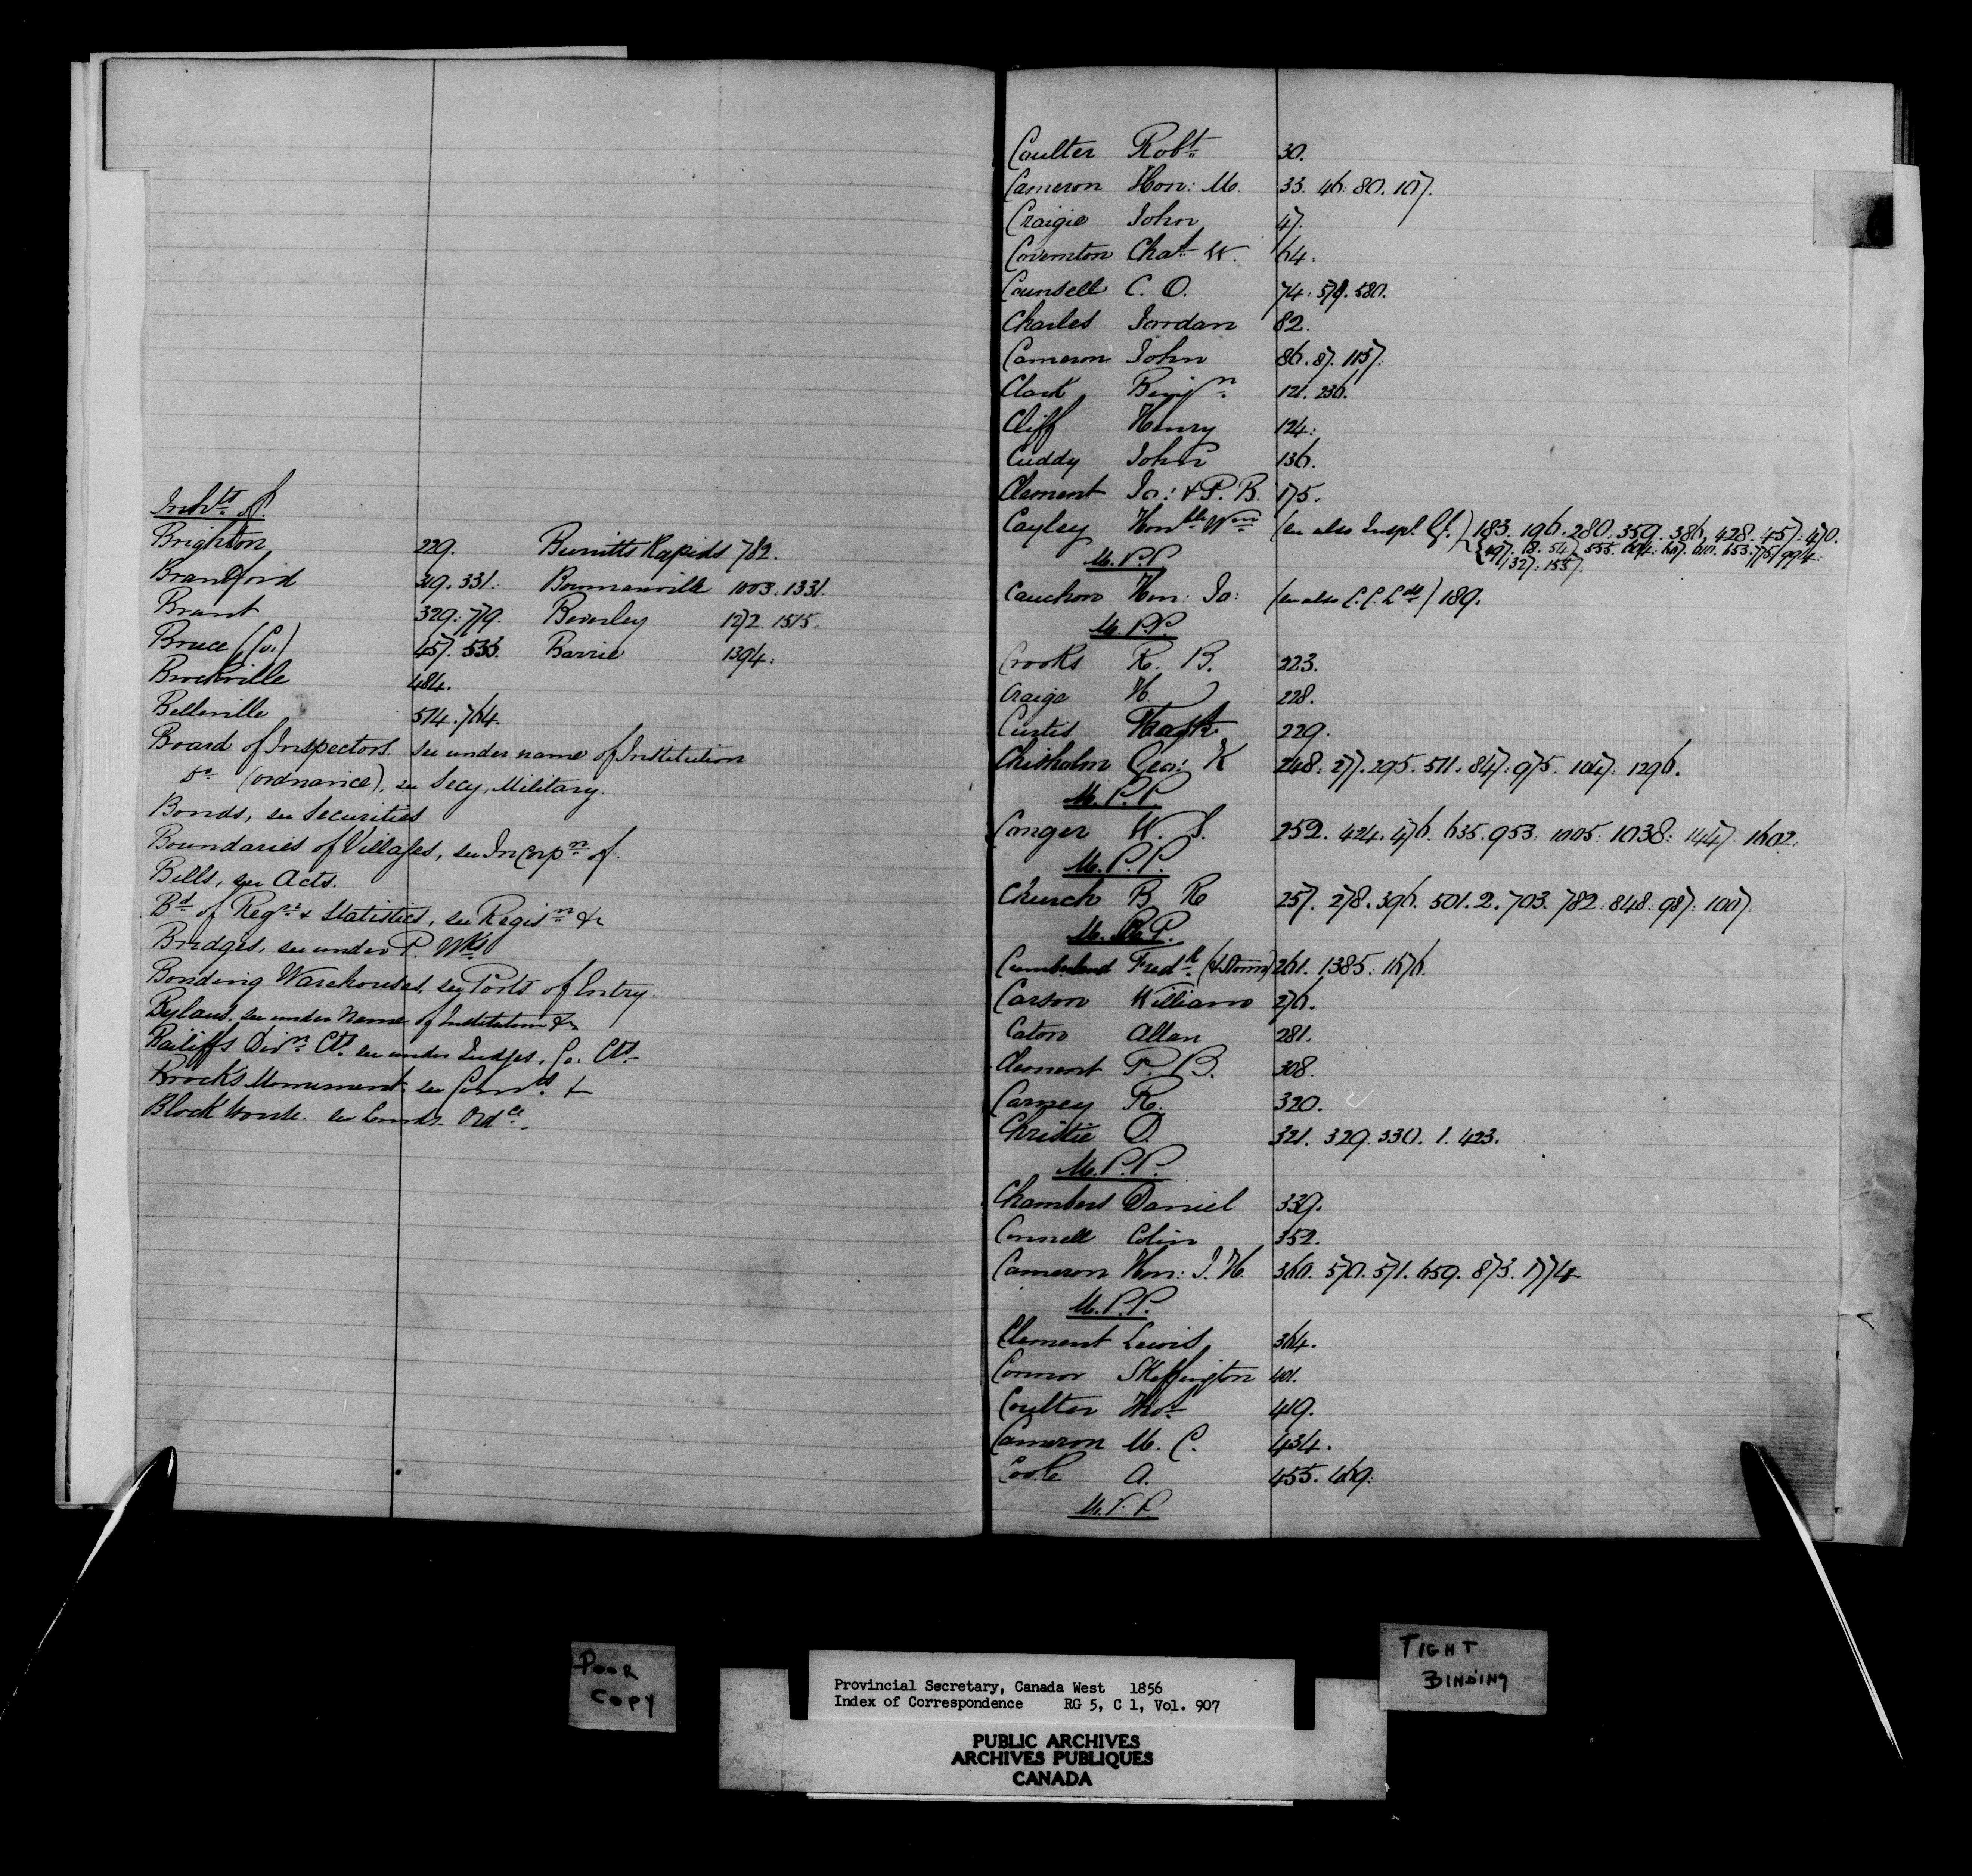 Inhts of
Brighton 229. Burritts Rapids 782.
Brantford 319. 331. Bowmanville 1003. 1331.
Brant 329. 779. Beverley 1272. 1515.
Bruce (Co.) 457. 533. Barrie 1394.
Brockville 484.
Belleville 514. 764.
Board of Inspectors. see under name of Institution
Do (Ordnance), see Secy, Military.
Bonds, see Securities
Boundaries of Villages, see Incorpn of.
Bills, see Acts.
Bd of Regn & Statistics, see Regisn &c
Bridges, see under P. Wks
Bonding Warehouses, see Ports of Entry.
Bylaws. see under Name of Institution &c
Bailiffs Divn Cts see under Judges, Co. Cts
Brock's Monument see Comrs. &
Block house. see Lands Ordce.
Coulter Robt 30.
Cameron Hon: M. 33. 46. 80. 107.
Craigie John 47.
Covernton Chas W. 64.
Counsell C. O. 74. 579. 580.
Charles Jordan 82.
Cameron John 86. 87. 1157.
Clark Benjn 121. 236.
Cliff Henry 124.
Cuddy John 136.
Clement Jo: & P. B. 175.
Cayley Honble Wm (see also Inspr Gl.) 183. 196. 280. 359. 386. 428. 457. 470.
M.P.P.
Cauchon Hon: Jo: (see also C. C. Lds) 189.
M.P.P.
Crooks R. B. 223.
Craige W. 228.
Curtis 229.
Chisholm Geo: K 248. 277. 295. 511. 847. 975. 1047. 1296.
M.P.P.
Conger W. S. 252. 424. 476. 635. 953. 1005. 1038. 1447. 1602.
M.P.P.
Church B R 257. 278. 396. 501. 2. 703. 782. 848. 987. 1007.
M.P.P.
Cumberland Fredk (& Storm) 261. 1385. 1676.
Carson William 276.
Caton Allan 281.
Clement P. B. 308.
Carney R. 320.
Christie D. 321. 329. 330. 1. 423.
M.P.P.
Chambers Daniel 339.
Connell Colin 352.
Cameron Hon: J. H. 360. 570. 571. 659. 873. 1774
M.P.P.
Clement Lewis 364.
Connor Skeffington 401.
Coulter Thos 419.
Cameron M. C. 434.
Cooke A. 455. 469.
M.P.P.
POOR
COPY
Provincial Secretary, Canada West 1856
Index of Correspondence RG 5, C 1, Vol. 907
PUBLIC ARCHIVES
ARCHIVES PUBLIQUES
CANADA
TIGHT
BINDING